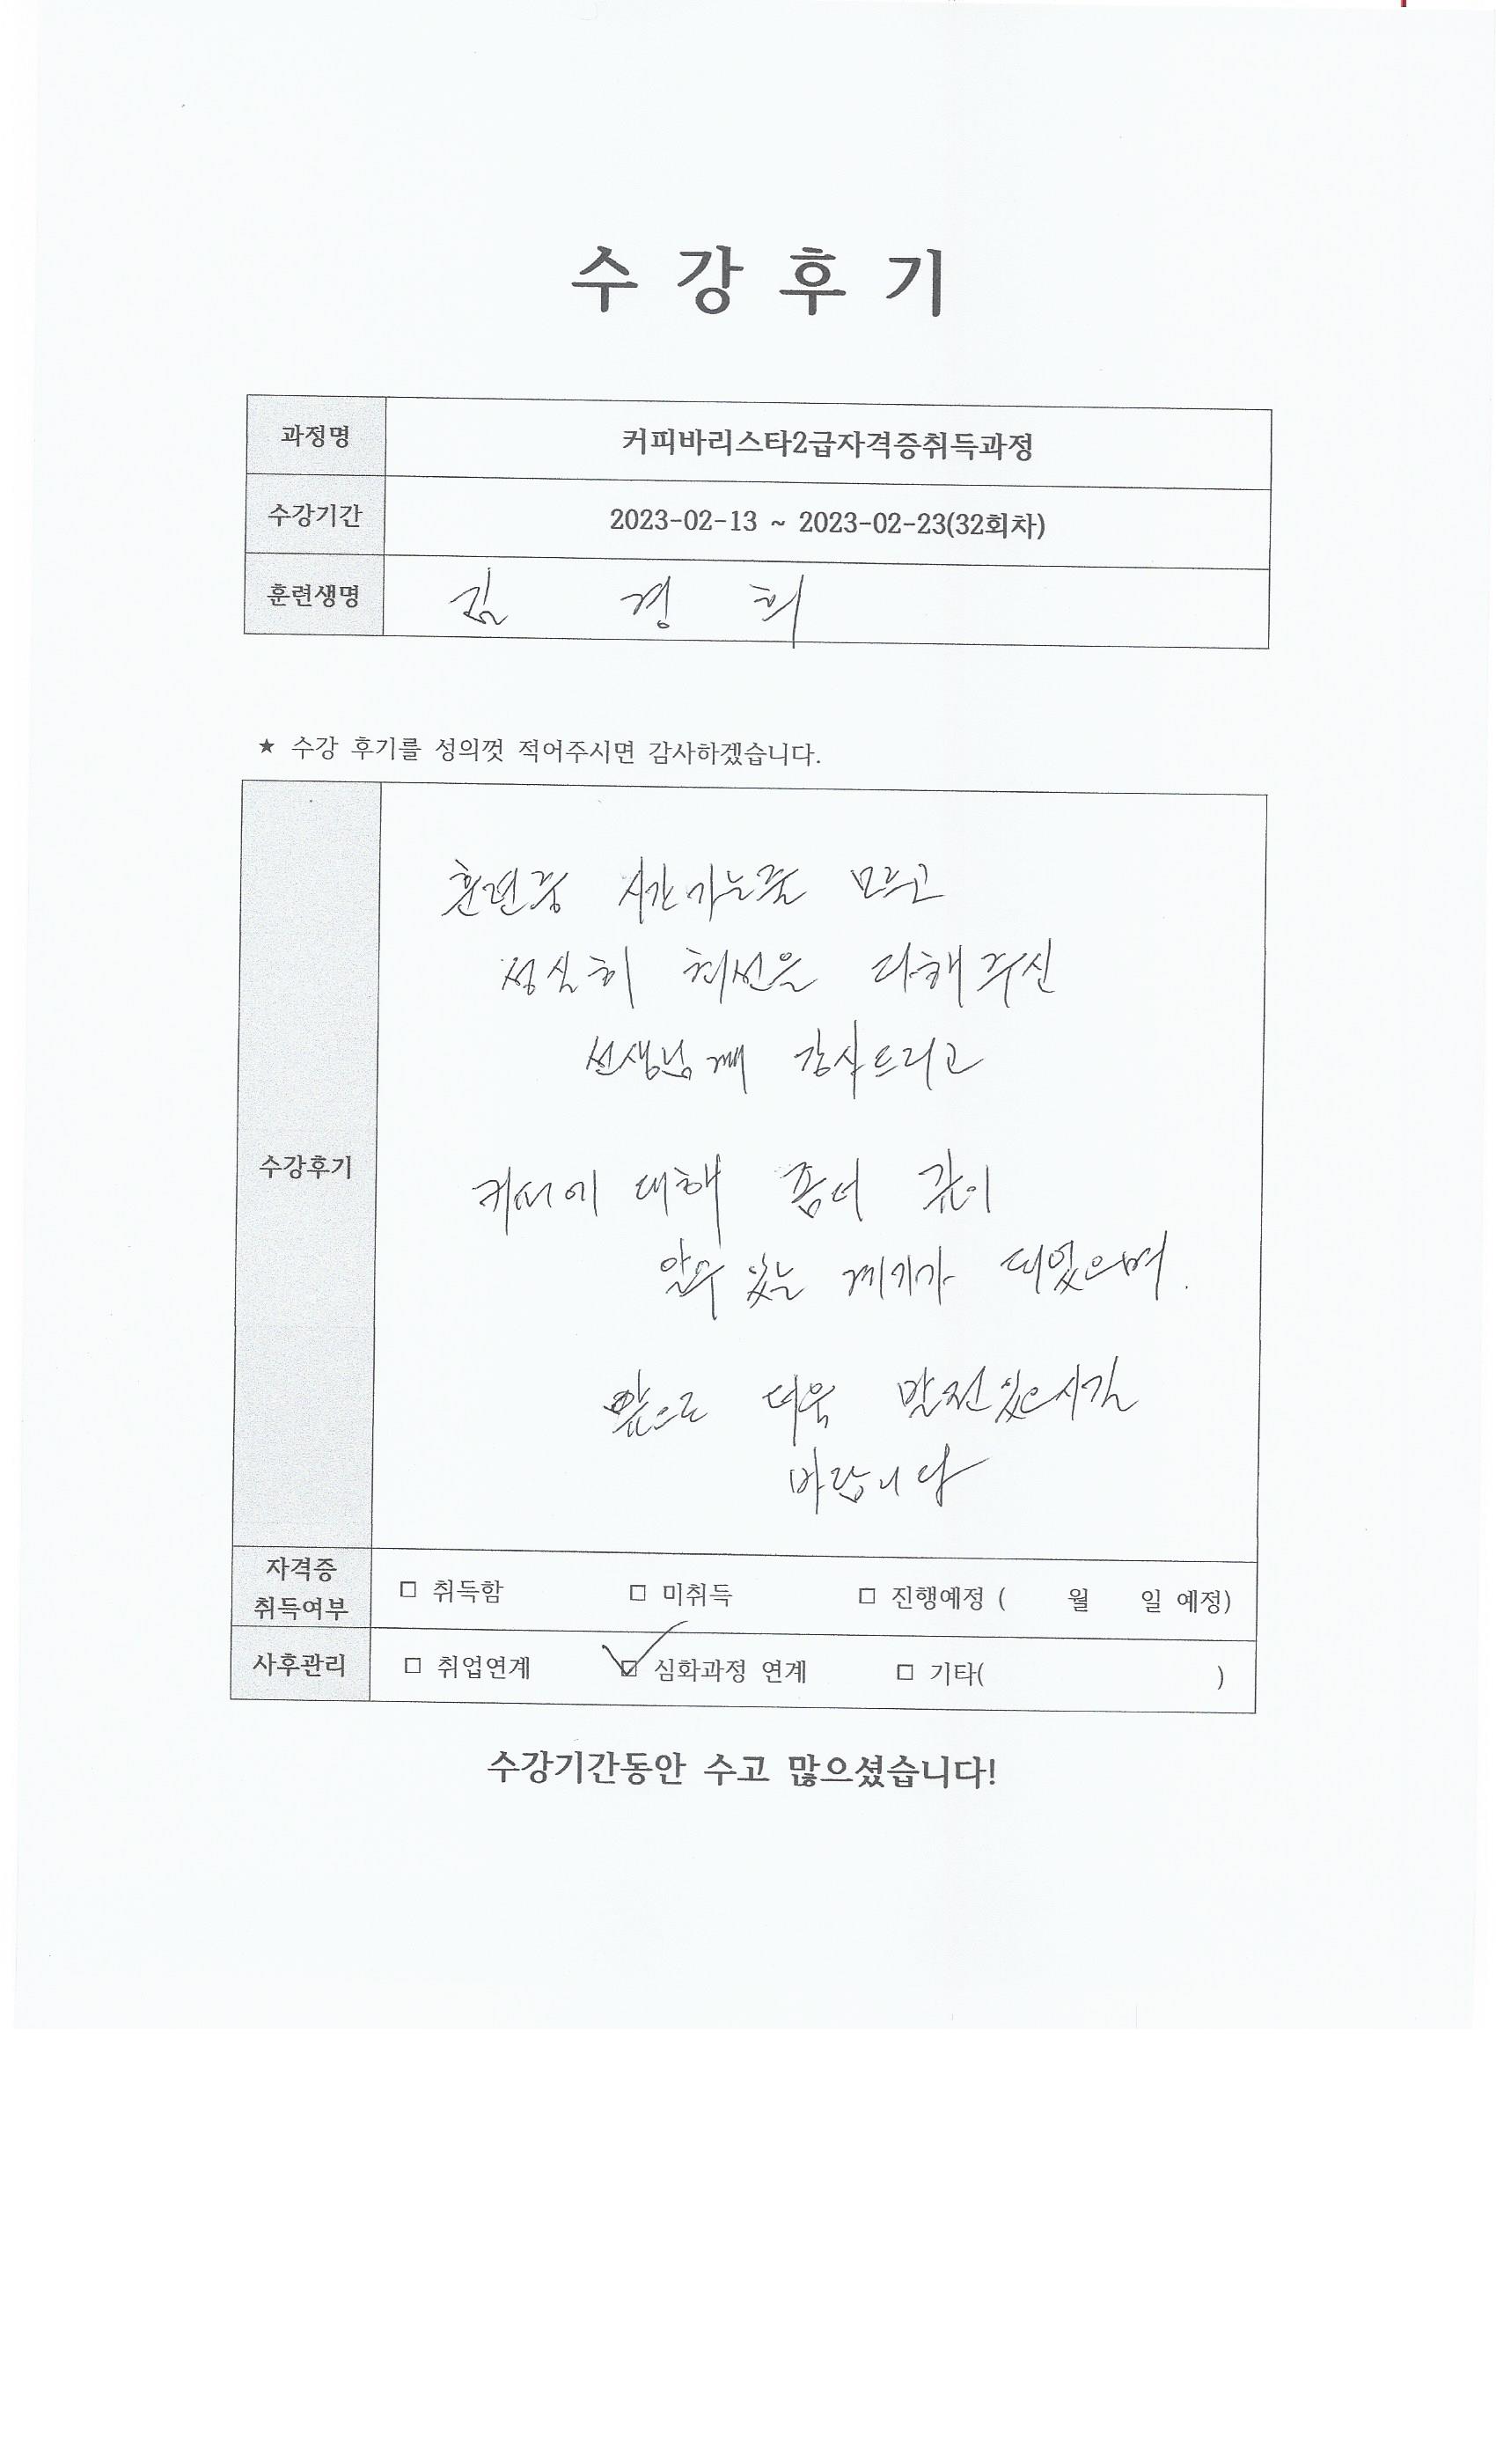 수강후기
과정명 커피바리스타2급자격증취득과정
수강기간 2023-02-13 ~ 2023-02-23(32회차)
훈련생명 김 경 희
★ 수강 후기를 성의껏 적어주시면 감사하겠습니다.
수강후기
훈련중 시간가는줄 모르고
성실히 최선을 다해주신
선생님께 감사드리고
커피에 대해 좀더 깊이
알수 있는 계기가 되었으며.
앞으로 더욱 발전있으시길
바랍니다
자격증
취득여부
□ 취득함 □ 미취득 □ 진행예정 ( 월 일 예정)
사후관리 □ 취업연계 ☑ 심화과정 연계 □ 기타( )
수강기간동안 수고 많으셨습니다!